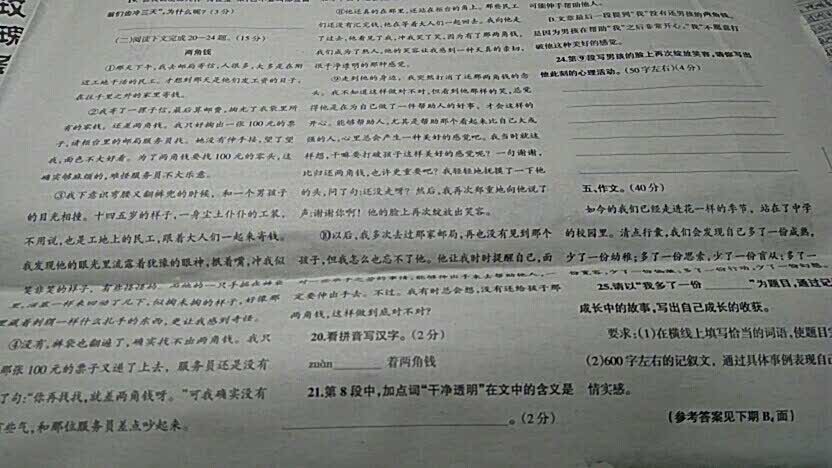 前们击三天",为什么呢?(3分)
(二)阅读下文完成20-24题。(15分)
两角钱
①那天下午,我去邮局寄信,人很多,大多是在附
近工地干活的民工,才想到那天是他们发工资的日子,
在往千里之外的家里寄钱。
②我寄了一摞子信,最后算邮费,掏光了我袋里所
有的零钱,还差两角钱。我只好掏出一张100元的票
子,请柜台里的邮局服务员找。她没有伸手接,望了望
我,面色不大好看。为了两角钱要找100元的零头,这
确实够麻烦的,难怪服务员不大乐意。
③我下意识弯腰又翻裤兜的时候,和一个男孩子
的目光相撞。十四五岁的样子,一身尘土仆仆的工装,
不用说,也是工地上的民工,跟着大人们一起来寄钱。
我发现他的眼光里流露着犹豫的眼神,抿着嘴,冲我似
笑非笑的样子,有些怪怪的。而他的一只手插在裤袋
里,活塞一样来回动了几下,似掏未掏的样子,好像那
里藏着刺猬一样什么扎手的东西,更让我感到奇怪。
④没有,裤袋也翻遍了,确实找不出两角钱。我只
那张100元的票子又递了上去,服务员还是没有
了句:"你再找找,就差两角钱呀。"可我确实没有
有些气,和那位服务员差点吵起来。
⑧他还真的在那里,还站在柜台的角上。那些民工
们还没有汇完钱,他在等着大人们一起回去。我向他走
了过去,他看见了我,冲我笑了笑,因为有了那两角钱,
我们成为了熟人,他的笑容让我感到一种天真的亲切,
很干净透明的那种感觉。
⑨走到他的身边,我突然打消了还那两角钱的念
头。我不知道这样做对不对,但看到他那样的笑,总觉
得他是在为自己做了一件帮助人的好事,才会这样的
开心。能够帮助人,尤其是帮助那个看起来比自己大或
强的人,心里总会产生一种美好的感觉吧。我当时就这
样想,干嘛要打破孩子这样美好的感觉呢?一句谢谢,
比归还两角钱,也许更重要吧?我轻轻地抚摸了一下他
的头,问了句:还没走呀?然后,我再次郑重地向他说了
声:谢谢你啊!他的脸上再次绽放出笑容。
⑩以后,我多次去过那家邮局,再也没有见到那个
孩子,但我怎么也忘不了他。他让我时时提醒自己,面
定要伸出手去。不过,我有时总会想,没有还给孩子那
两角钱,这样做到底对不对?
20.看拼音写汉字。(2分)
zuàn______ 着两角钱
21.第8段中,加点词"干净透明"在文中的含义是
。(2分)
可能伸手帮助他人。
D.文章最后一段提到"我"没有还男孩的两角钱,
是因为男孩在帮助"我"之后非常开心,"我"不愿意打
破他这种美好的感觉。
24.第9段写男孩的脸上再次绽放笑容,请你写出
他此刻的心理活动。(50字左右)(4分)
五、作文。(40分)
如今的我们已经走进花一样的季节,站在了中学
的校园里。清点行囊,我们会发现自己多了一份成熟,
少了一份幼稚;多了一份思索,少了一份盲从;多了一
25.请以"我多了一份______"为题目,通过记
成长中的故事,写出自己成长的收获。
要求:(1)在横线上填写恰当的词语,使题目完
(2)600字左右的记叙文,通过具体事例表现自己
情实感。
(参考答案见下期B₄面)